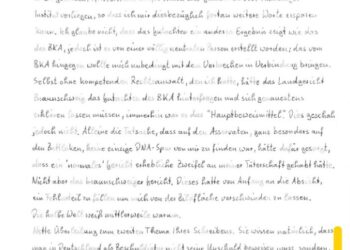 Institut vorliegen, so dass ich mir diesbezüglich fortan weitere Worte ersparen
kann. Ich glaube nicht, dass das Gutachten ein anderes Ergebnis zeigt wie das
des BKA, jedoch ist es von einer willig neutralen Person erstellt worden; das vom
BKA hingegen wollte mich unbedingt mit dem Verbrechen in Verbindung bringen.
Selbst ohne kompetenten Rechtsanwalt, den ich hatte, hätte das Landgericht
Braunschweig das Gutachten des BKA hinterfragen und sich genauestens
erklären lassen müssen, immerhin war es das "Hauptbeweismittel". Dies geschah
jedoch nicht. Alleine die Tatsache, dass auf den Asservaten, ganz besonders auf
den Zetteln, keine einzige DNA-Spur von mir zu finden war, hätte dafür gesorgt,
dass ein 'normales' Gericht erhebliche Zweifel an meiner Täterschaft gehabt hätte.
Nicht aber das Braunschweiger Gericht. Dieses hatte von Anfang an die Absicht,
ein Fehlurteil zu fällen um mich von der Bildfläche verschwinden zu lassen.
Die halbe Welt weiß mittlerweile warum.
Nette Überleitung zum zweiten Thema Ihres Schreibens. Sie wissen natürlich, dass
man in Deutschland als Beschuldigter nicht seine Unschuld beweisen muss, sondern